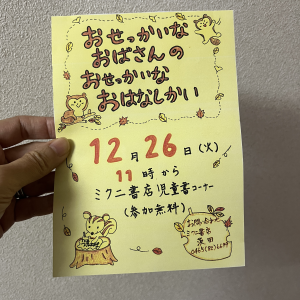 おせっかいな
おばさんの
おせっかいな
おはなしかい
12月26日(火)
11時から
ミクニ書店児童書コーナー
(参加無料)
お問い合わせ
ミクニ書店